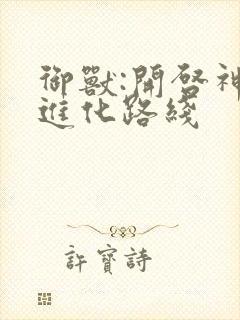 御獸:開啓神
進化路綫
許寶詩